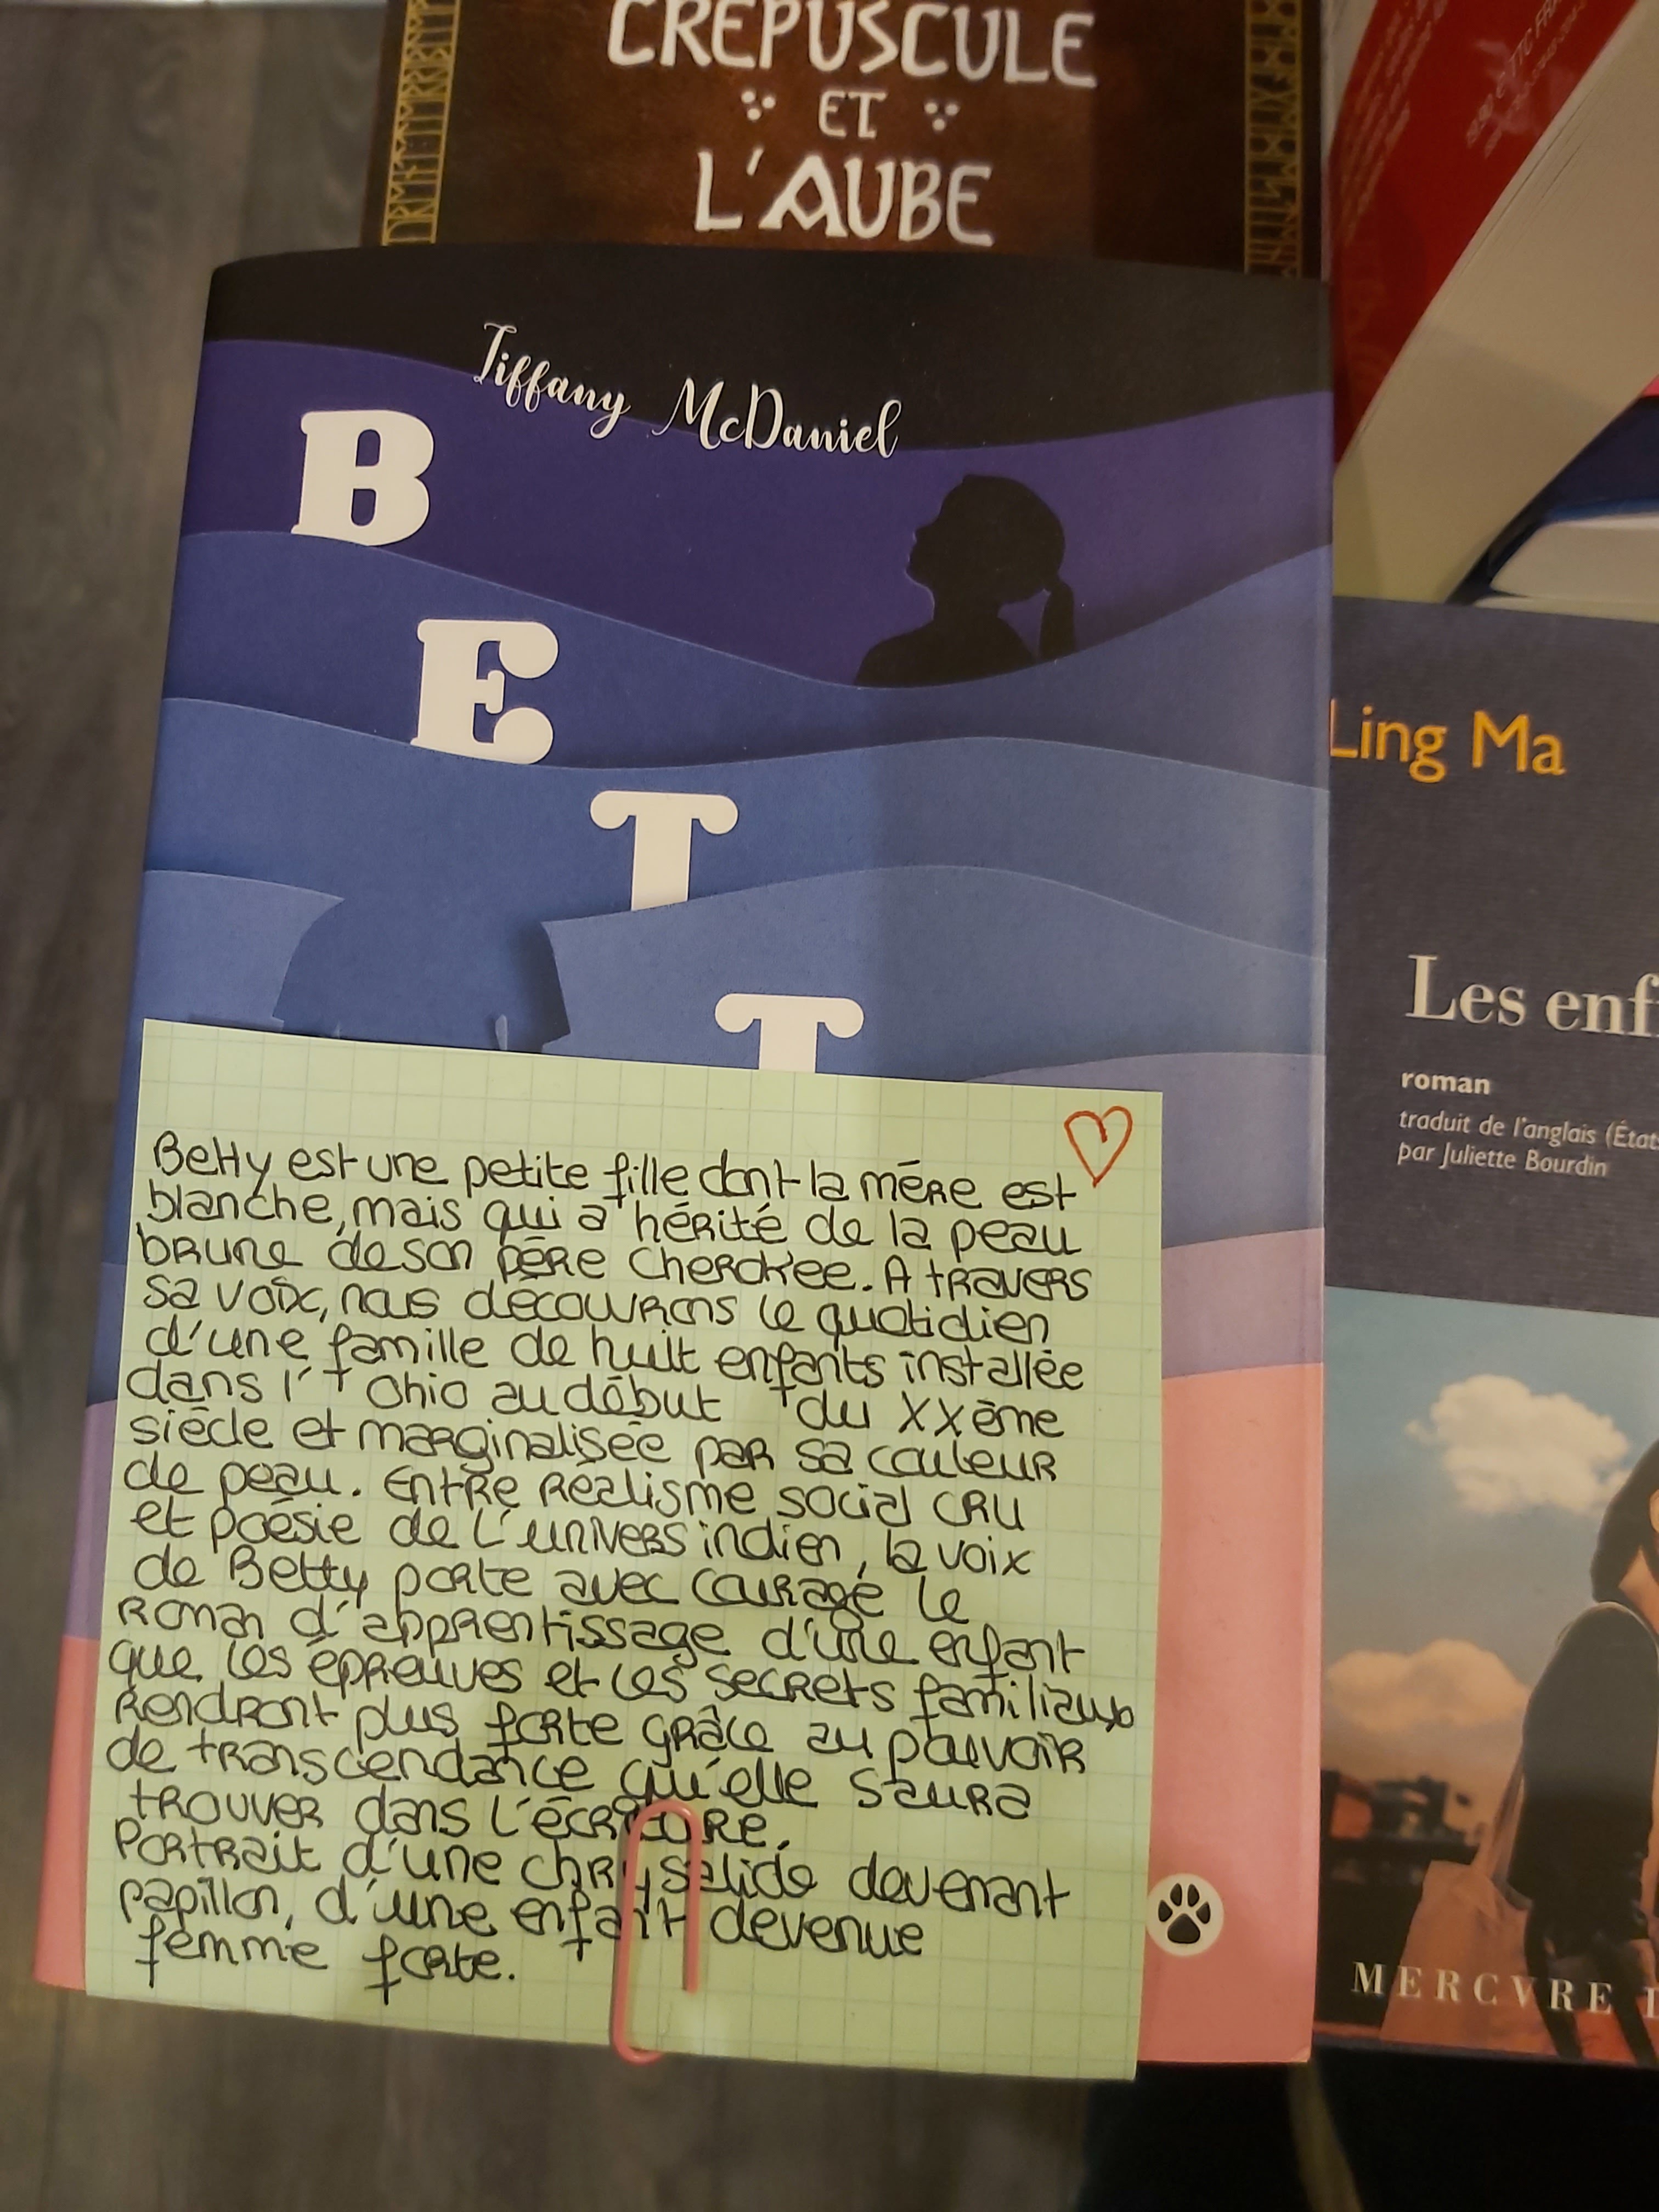 CRÉPUSCULE
ET
L'AUBE
Tiffany McDaniel
B
E
T
T
Betty est une petite fille dont la mère est
blanche, mais qui a hérité de la peau
brune de son père Cherokee. A travers
sa voix, nous découvrons le quotidien
d'une famille de huit enfants installée
dans l'Ohio au début du XXème
siècle et marginalisée par sa couleur
de peau. Entre réalisme social cru
et poésie de l'univers indien, la voix
de Betty porte avec courage le
roman d'apprentissage d'une enfant
que les épreuves et les secrets familiaux
rendront plus forte grâce au pouvoir
de transcendance qu'elle saura
trouver dans l'écriture.
Portrait d'une chrysalide devenant
papillon, d'une enfant devenue
femme forte.
Ling Ma
Les enf
roman
traduit de l'anglais (États
par Juliette Bourdin
MERCVRE D